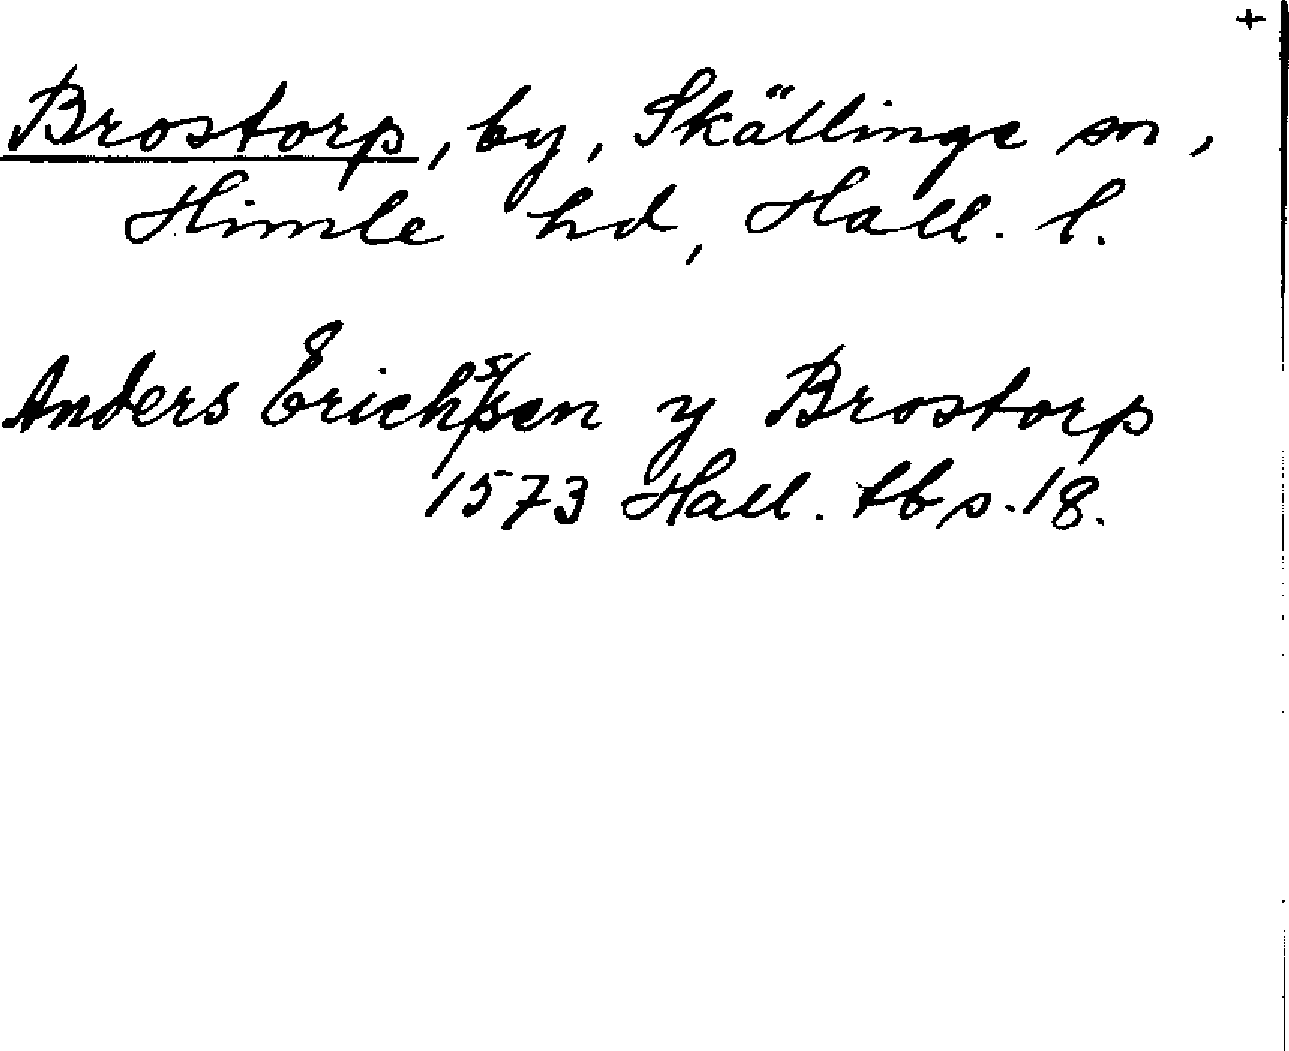 +
Brostorp, by, Skällinge sn,
Himle hd, Hall. l.
Anders Erichssen y Brostorp
1573 Hall. tb s. 18.